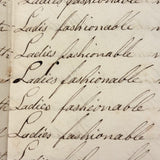 Ladies fashionable
Ladies fashionable
Ladies fashionable
Ladies fashionable
Ladies fashionable
Ladies fashionable
Ladies fashionable